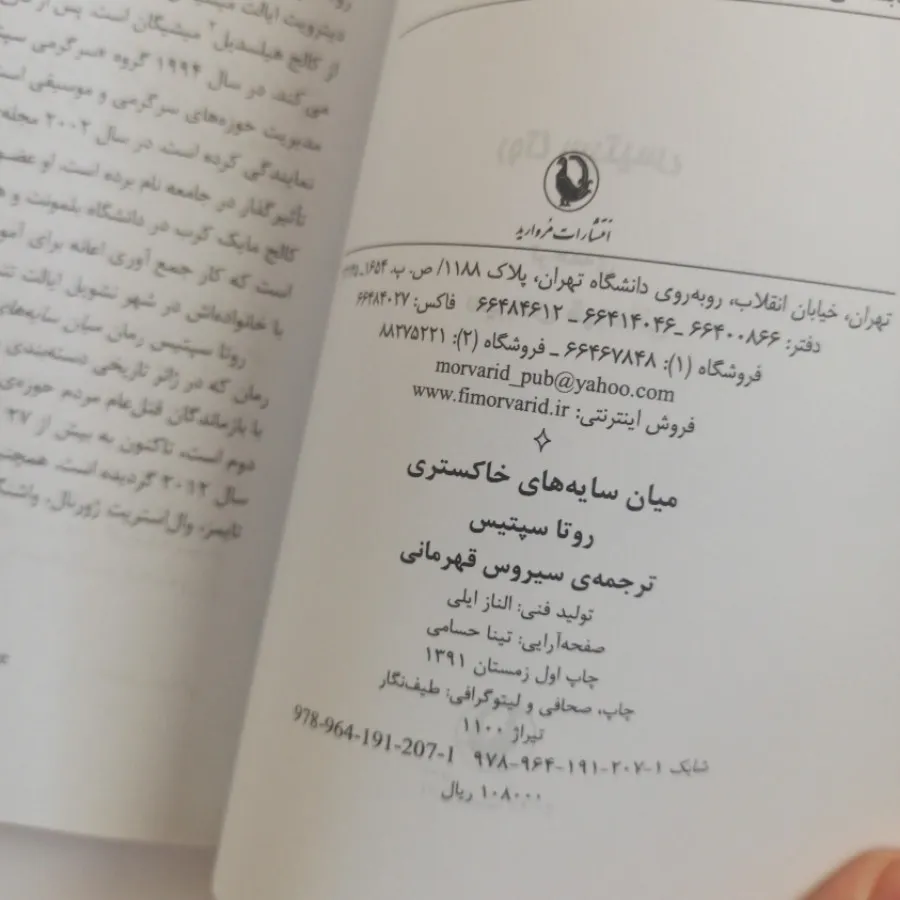 انتشارات مروارید
تهران، خیابان انقلاب، روبه‌روی دانشگاه تهران، پلاک ۱۱۸۸/ ص. پ. ۱۶۵۴ـ
دفتر: ۶۶۴۰۰۸۶۶ ـ ۶۶۴۱۴۰۴۶ ـ ۶۶۴۸۴۶۱۲ فاکس: ۶۶۴۸۴۰۲۷
فروشگاه (۱): ۶۶۴۶۷۸۴۸ ـ فروشگاه (۲): ۸۸۲۷۵۲۲۱
morvarid_pub@yahoo.com
فروش اینترنتی: www.fimorvarid.ir
میان سایه‌های خاکستری
روتا سپتیس
ترجمه‌ی سیروس قهرمانی
تولید فنی: الناز ایلی
صفحه‌آرایی: تینا حسامی
چاپ اول زمستان ۱۳۹۱
چاپ، صحافی و لیتوگرافی: طیف‌نگار
تیراژ ۱۱۰۰
شابک ۱-۲۰۷-۱۹۱-۹۶۴-۹۷۸ 978-964-191-207-1
۱۰۸۰۰۰ ریال
دیترویت ایالت
از کالج هیلسدیل۲ میشیگان است. پس از
می‌کند. در سال ۱۹۹۴ گروه «سرگرمی
مدیریت حوزه‌های سرگرمی و موسیقی
نمایندگی کرده است. در سال ۲۰۰۲ مجله
تأثیرگذار در جامعه نام برده است. او عضو
کالج مایک کرب در دانشگاه بلمونت و
است که کار جمع آوری اعانه برای
با خانواده‌اش در شهر نشویل ایالت
روتا سپتیس رمان میان سایه‌های
رمان که در ژانر تاریخی دسته‌بندی
با بازماندگان قتل‌عام مردم حوزه‌ی
دوم است، تاکنون به بیش از ۲۷
سال ۲۰۱۲ گردیده است.
تایمز، وال‌استریت ژورنال،